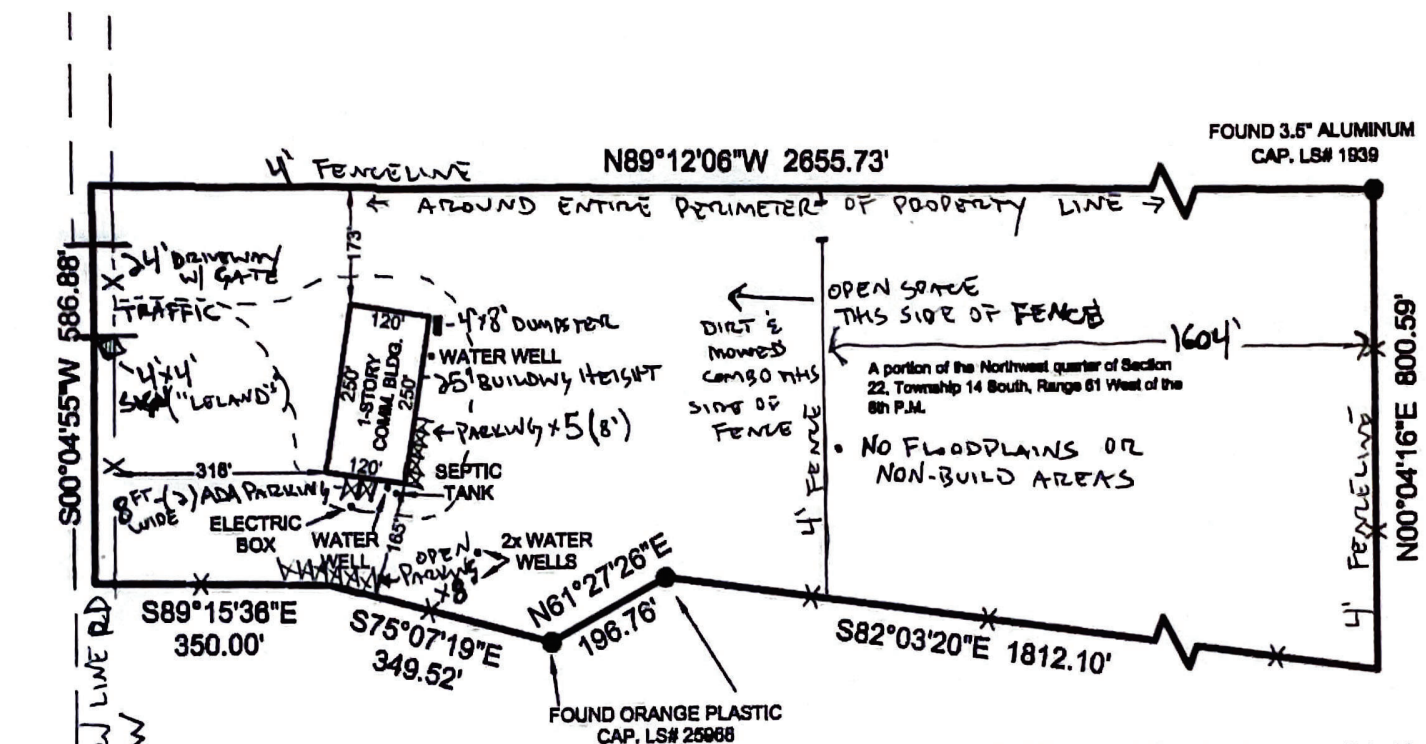 FOUND 3.5" ALUMINUM
CAP. LS# 1939
N89°12'06"W 2655.73'
4' FENCELINE
← AROUND ENTIRE PERIMETER OF PROPERTY LINE →
S00°04'55"W 586.88'
24' DRIVEWAY
W/ GATE
TRAFFIC
4'x4'
SIGN ("LELAND'S")
173'
120'
250'
1-STORY
COMM. BLDG.
250'
120'
4'x8' DUMPSTER
WATER WELL
25' BUILDING HEIGHT
← PARKING x 5 (8')
SEPTIC
TANK
318'
8FT-(2) ADA PARKING
WIDE
ELECTRIC
BOX
WATER
WELL
165'
OPEN
PARKING
x8
2x WATER
WELLS
DIRT &
MOWED
COMBO THIS
SIDE OF
FENCE
4' FENCE
OPEN SPACE
THIS SIDE OF FENCE
1604'
A portion of the Northwest quarter of Section
22, Township 14 South, Range 61 West of the
6th P.M.
• NO FLOODPLAINS OR
NON-BUILD AREAS
4' FENCELINE
N00°04'16"E 800.59'
S89°15'36"E
350.00'
S75°07'19"E
349.52'
N61°27'26"E
196.76'
S82°03'20"E 1812.10'
FOUND ORANGE PLASTIC
CAP. LS# 25968
LINE RD